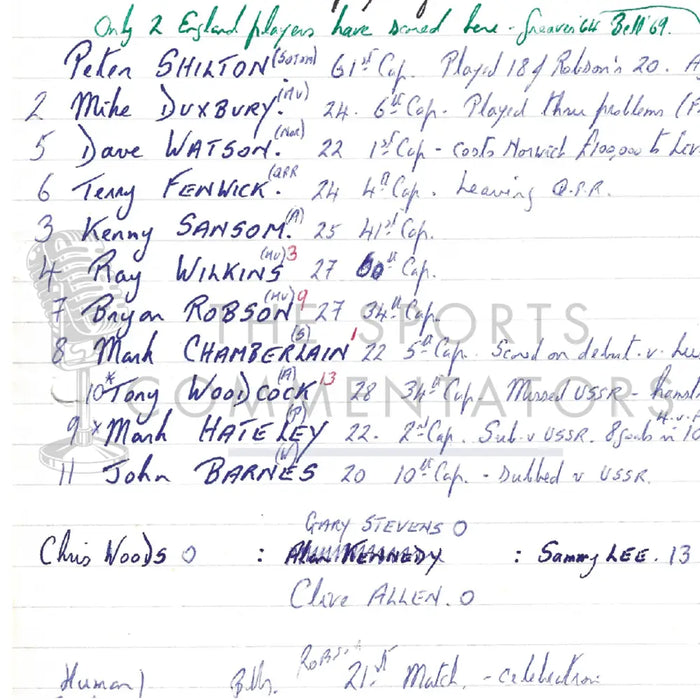 Only 2 England players have scored here - Greaves '64 Bell '69.
Peter SHILTON. (SOTON) 61st Cap. Played 18 of Robson's 20. A
2 Mike DUXBURY. (MU) 24. 6th Cap. Played three problems
5 Dave WATSON. (Nor) 22 1st Cap - costs Norwich £100,000 to Liv
6 Terry FENWICK. (QPR 24 4th Cap. Leaving Q.P.R.
3 Kenny SANSOM. (A) 25 41st Cap.
4 Ray WILKINS (MU) 3 27 60th Cap.
7 Bryan ROBSON (MU) 9 27 34th Cap.
8 Mark CHAMBERLAIN (S) 1 22 5th Cap. Scored on debut. v. Lux
10* Tony WOODCOCK (A) 13 28 34th Cap - Missed USSR - hamstr
9 x Mark HATELEY (P) 22. 2nd Cap. Sub v USSR. 8 goals in 10
11 John BARNES (W) 20 10th Cap. - Dubbed v USSR.
GARY STEVENS 0
Chris WOODS 0 : Alan KENNEDY : Sammy LEE. 13
Clive ALLEN. 0
ROBSON
Human) Bobby 21st Match. - celebration
THE SPORTS
COMMENTATORS